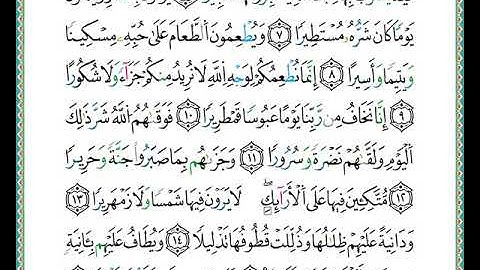 يَوْمًا كَانَ شَرُّهُۥ مُسْتَطِيرًا ٧ وَيُطْعِمُونَ ٱلطَّعَامَ عَلَىٰ حُبِّهِۦ مِسْكِينًا
وَيَتِيمًا وَأَسِيرًا ٨ إِنَّمَا نُطْعِمُكُمْ لِوَجْهِ ٱللَّهِ لَا نُرِيدُ مِنكُمْ جَزَآءً وَلَا شُكُورًا
٩ إِنَّا نَخَافُ مِن رَّبِّنَا يَوْمًا عَبُوسًا قَمْطَرِيرًا ١٠ فَوَقَىٰهُمُ ٱللَّهُ شَرَّ ذَٰلِكَ
ٱلْيَوْمِ وَلَقَّىٰهُمْ نَضْرَةً وَسُرُورًا ١١ وَجَزَىٰهُم بِمَا صَبَرُوا۟ جَنَّةً وَحَرِيرًا
١٢ مُّتَّكِـِٔينَ فِيهَا عَلَى ٱلْأَرَآئِكِ ۖ لَا يَرَوْنَ فِيهَا شَمْسًا وَلَا زَمْهَرِيرًا ١٣
وَدَانِيَةً عَلَيْهِمْ ظِلَٰلُهَا وَذُلِّلَتْ قُطُوفُهَا تَذْلِيلًا ١٤ وَيُطَافُ عَلَيْهِم بِـَٔانِيَةٍ